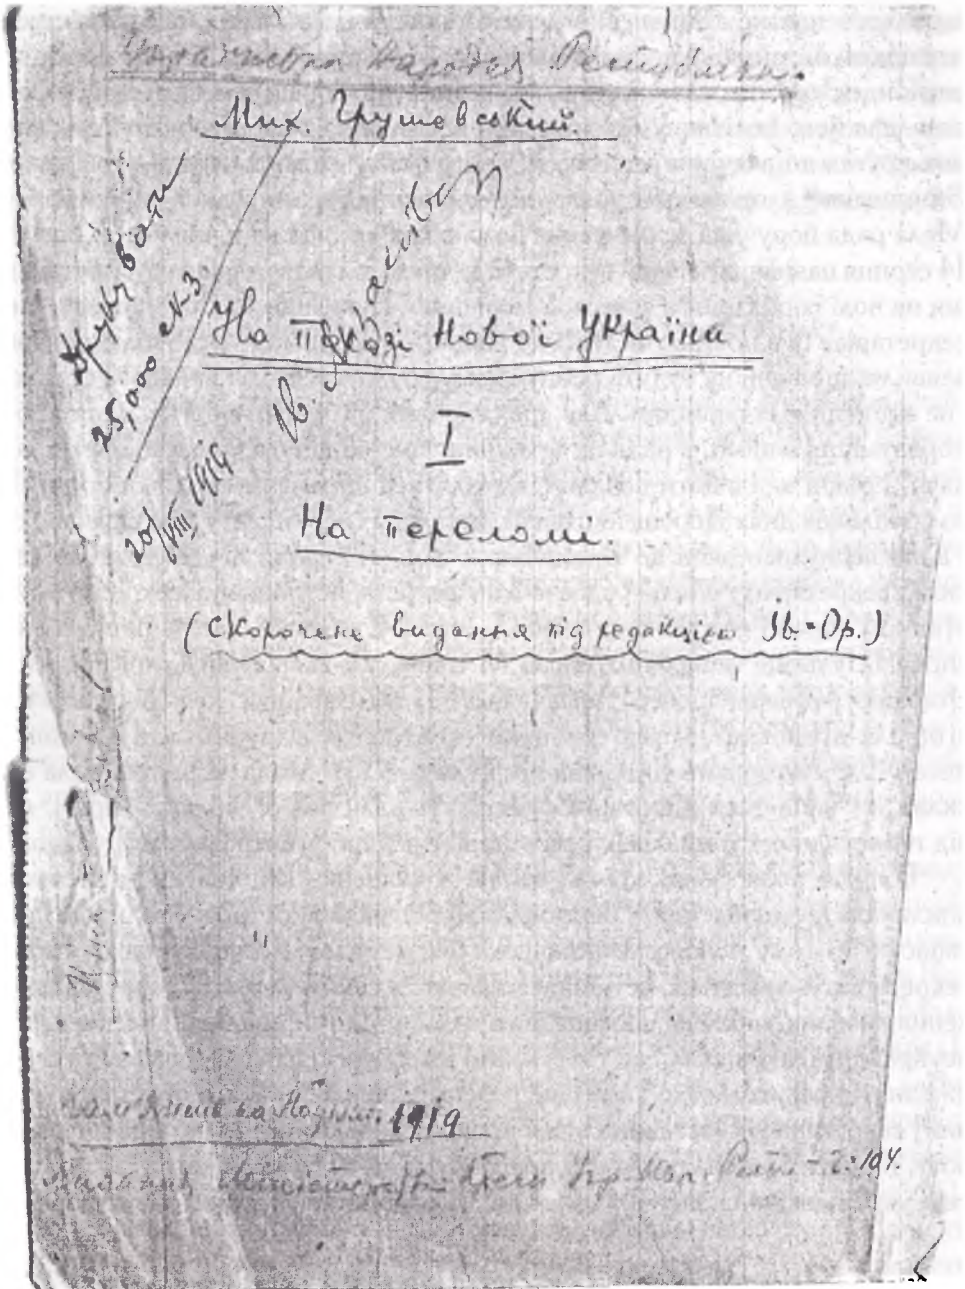 Українська Народня Республіка.
Мих. Грушевський.
Друкувати
25,000 
20/VIII 1919
Ів.
На порозі Нової України
I
На переломі.
(Скорочене видання під редакцією Ів.-Ор.)
Кам'янець на Поділлю. 1919
Видання Міністерства Преси Укр. Нар. Респ.